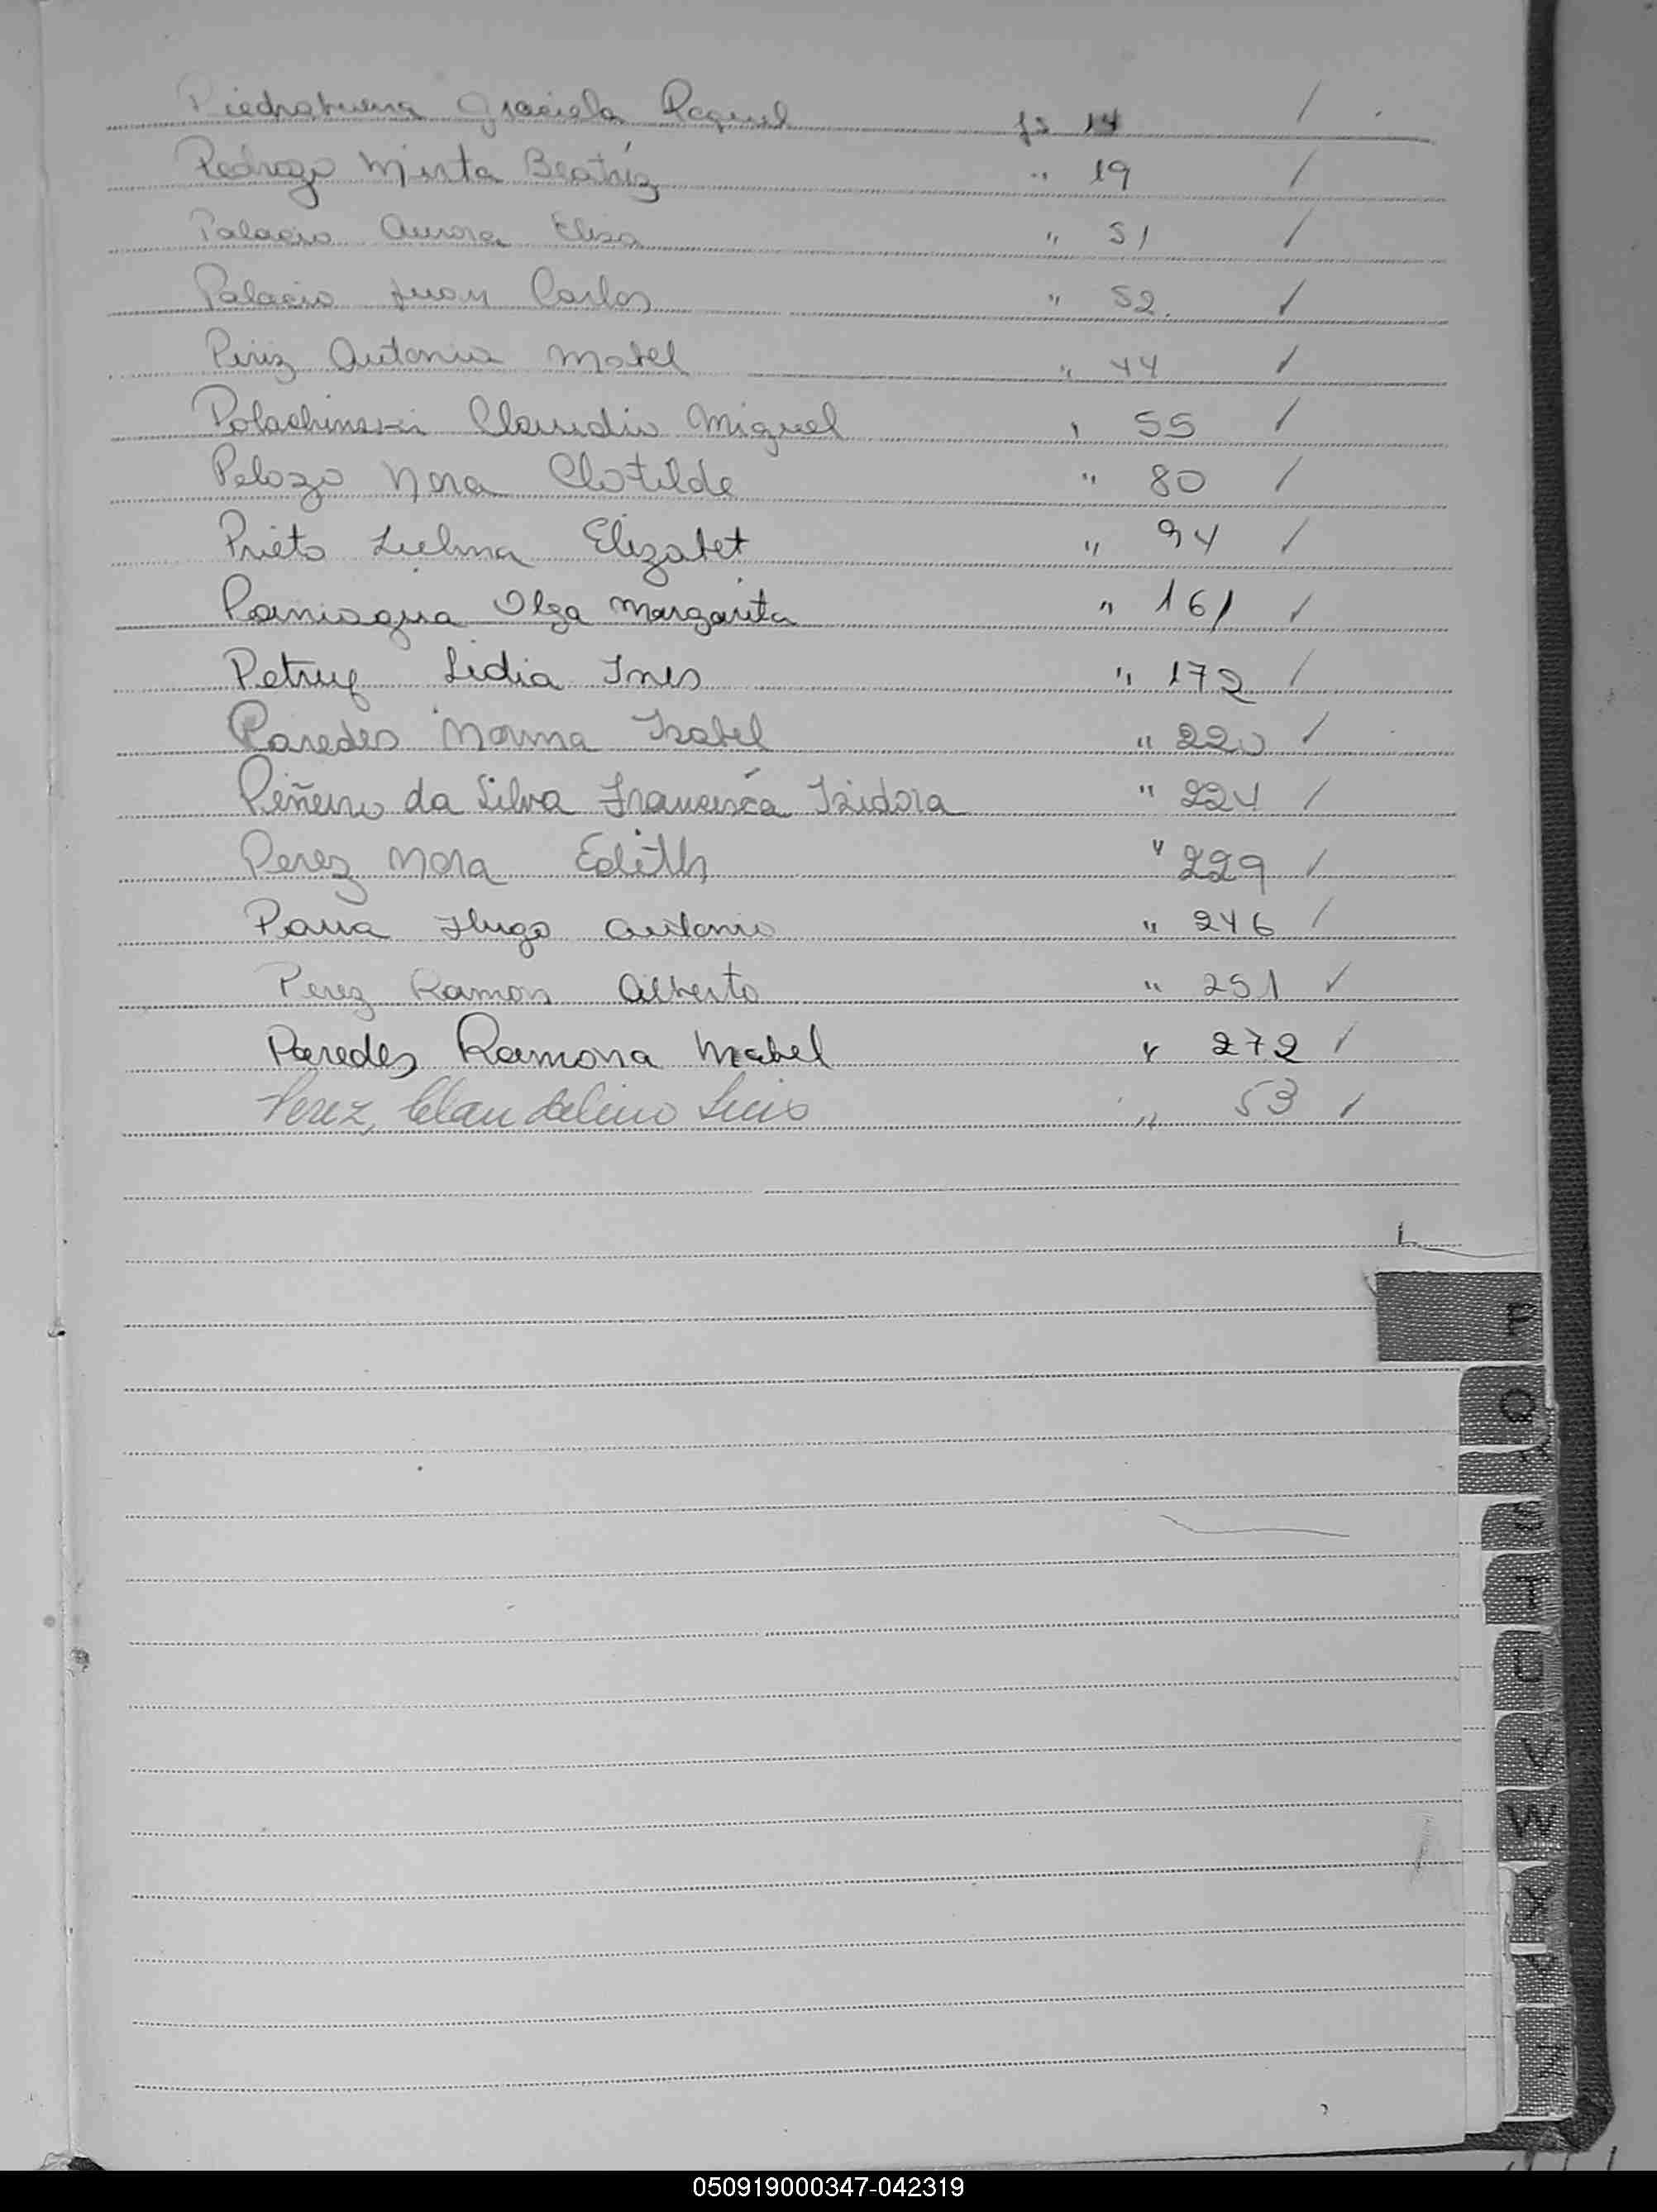 Piedrabuena Graciela Raquel fs 14 /
Pedrozo Mirta Beatríz " 19 /
Palacio Aurora Elisa " 51 /
Palacio Juan Carlos " 52. /
Piriz Antonia Mabel " 44 /
Polachinski Claudio Miguel " 55 /
Pelozo Nora Clotilde " 80 /
Prieto Zulma Elizabet " 94 /
Paniagua Olga Margarita " 161 /
Petruy Lidia Ines " 172 /
Paredes Norma Isabel " 220 /
Piñeiro da Silva Francisca Isidora " 224 /
Perez Nora Edith " 229 /
Parra Hugo Antonio " 246 /
Perez Ramon Alberto " 251 /
Paredes Ramona Mabel " 272 /
Perez, Claudelino Luis " 53 /
P
Q
S
T
U
V
W
X
Z
050919000347-042319